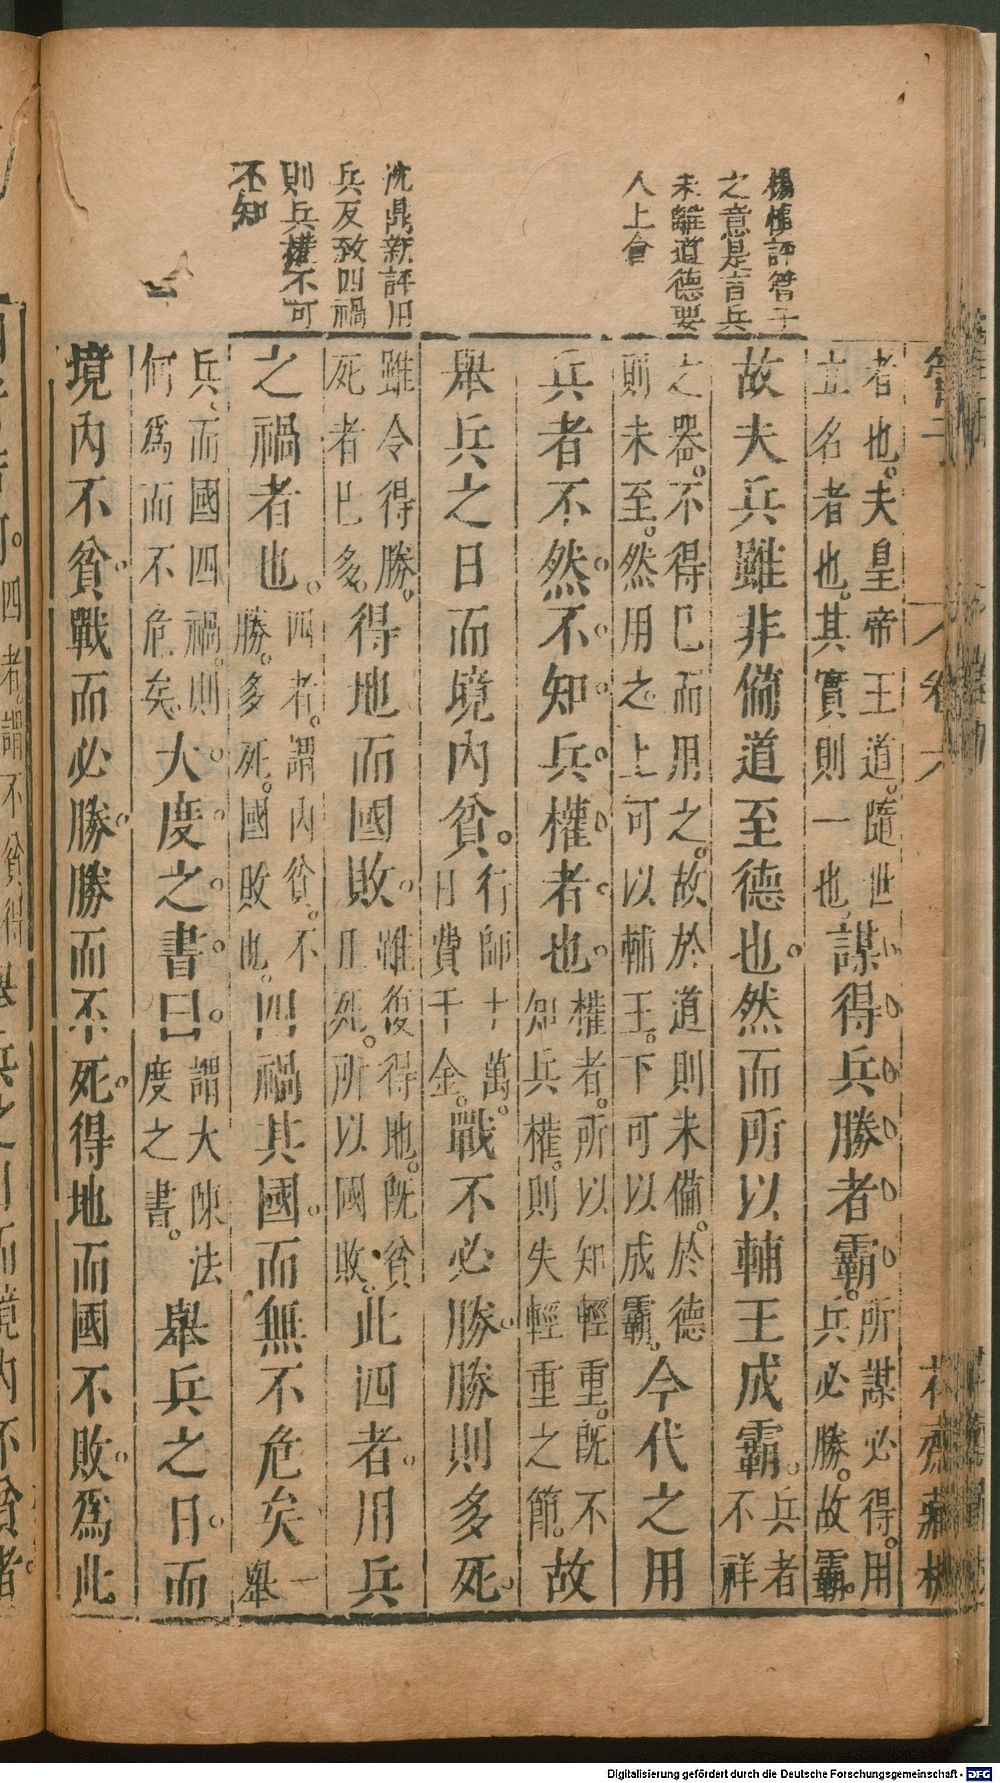 楊慎評管子
之意是言兵
未離道德要
人上會
沈鼎新評用
兵反致四禍
則兵權不可
不知
管子
卷六
花齋藏板
者也。夫皇帝王道。隨世
立名者也。其實則一也。
謀得兵勝者霸。
所謀必得。用
兵必勝。故霸。
故夫兵雖非備道至德也。然而所以輔王成霸。
兵者
不祥
之器。不得已而用之。故於道則未備。於德
則未至。然用之。上可以輔王。下可以成霸。
今代之用
兵者不然。不知兵權者也。
權者。所以知輕重。既不
知兵權。則失輕重之節。
故
舉兵之日而境內貧。
行師十萬。
日費千金。
戰不必勝。勝則多死。
雖令得勝。
死者已多。
得地而國敗。
惟復得地。既貧
且死。所以國敗。
此四者。用兵
之禍者也。
四者。謂內貧。不
勝。多死。國敗也。
四禍其國。而無不危矣
一
舉
兵、而國四禍。則
何為而不危矣。
大度之書曰。
謂大陳法
度之書。
舉兵之日。而
境內不貧。戰而必勝。勝而不死。得地而國不敗。為此